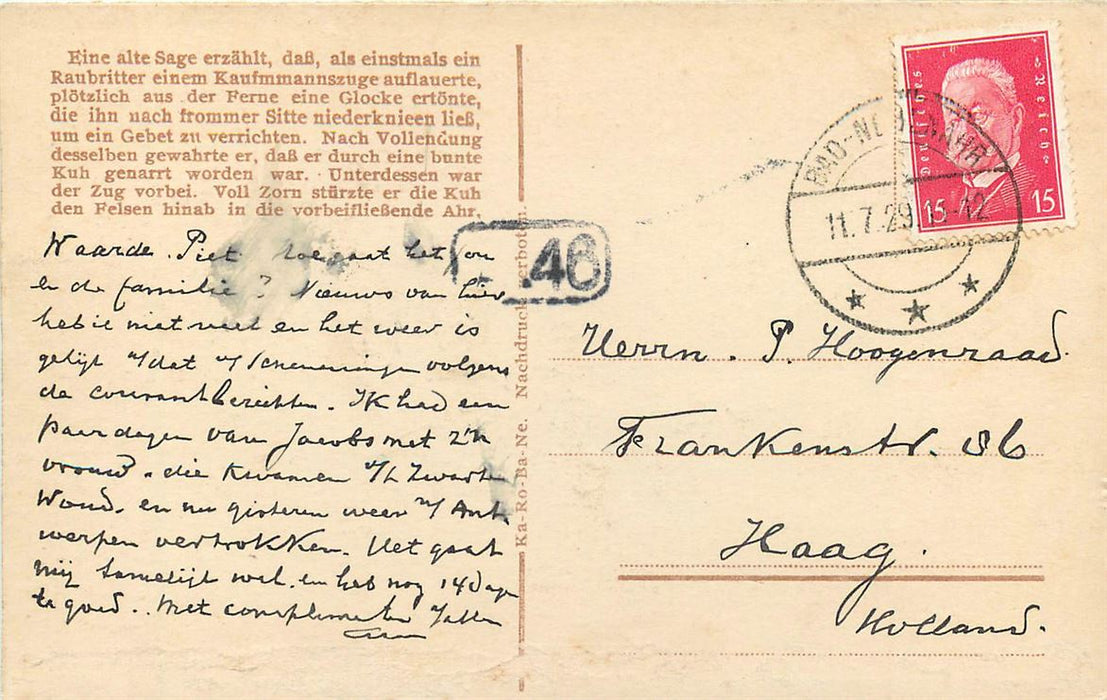 Eine alte Sage erzählt, daß, als einstmals ein
Raubritter einem Kaufmmannszuge auflauerte,
plötzlich aus der Ferne eine Glocke ertönte,
die ihn nach frommer Sitte niederknieen ließ,
um ein Gebet zu verrichten. Nach Vollendung
desselben gewahrte er, daß er durch eine bunte
Kuh genarrt worden war. Unterdessen war
der Zug vorbei. Voll Zorn stürzte er die Kuh
den Felsen hinab in die vorbeifließende Ahr.
Waarde Piet hoe gaat het jou
en de familie? Nieuws van hier
heb ik niet veel en het weer is
gelijk a/dat v/Scheveningen volgens
de courantberichten. Ik had een
paar dagen van Jacobs met z'n
vrouw. die kwamen u/h Zwarte
Woud. en nu gisteren weer n/ Ant
werpen vertrokken. Het gaat
mij tamelijk wel. en heb nog 14 dage
te goed. Met complimenten
Ka-Ro-Ba-Ne. Nachdruck verboten.
.46
Deutsches Reich
15 15
BAD-NEUENAHR
11.7.29
-12
Herrn. P. Hoogenraad.
Frankenstr. 36
Haag.
Holland.